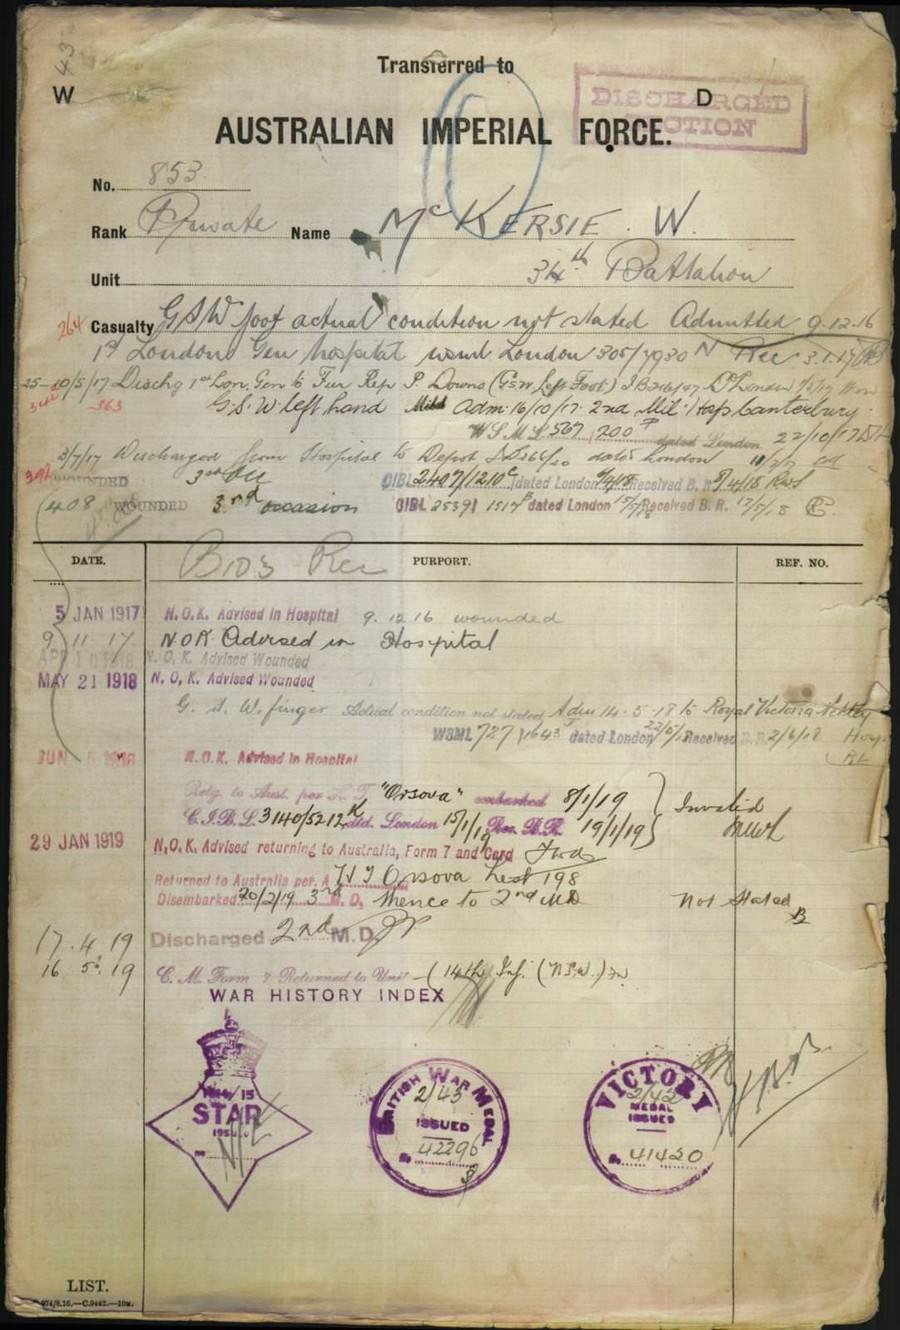 43
Transferred to
W D
DISCHARGED
SECTION
AUSTRALIAN IMPERIAL FORCE.
No. 853.
Rank Private Name McKERSIE. W.
Unit 34th Battalion
264 Casualty GSW foot actual condition not stated Admitted 9.12.16
1st London Gen hospital wsml London 305/7930 N Rec 3.1.17
25-10/5/17 Dischg 1st Lon. Gen to Fur Rep P. Downs (Gsw left Foot)
363 G.S.W. left hand Mild adm. 16/10/17. 2nd Mil. Hosp Canterbury.
WSML 567 1200 P dated London 22/10/17
3/7/17 Discharged from Hospital to Depot dated London
392 WOUNDED 3rd Occ CIBL 2407/1210c dated London 9/4/18 Received B. R. 9/4/18 RWS
408 WOUNDED 3rd occasion CIBL 2539 1517 P dated London 15/5/18 Received B. R. 17/5/18
DATE. B103 Rec PURPORT. REF. NO.
5 JAN 1917 N.O.K. Advised in Hospital 9.12.16 wounded
9 11 17 NOK Advised in Hospital
APR 10 1918 N. O. K. Advised Wounded
MAY 21 1918 N. O. K. Advised Wounded
G. S. W. finger Actual condition not stated Adm 14-5-18 to Royal Victoria Netley
WSML 727 1643 J dated London 22/5/18 Received B.R. 2/6/18 Hosp
JUN 5 1918 N.O.K. Advised in Hospital RL
Retg. to Aust. per H.T. "Orsova" embarked 8/1/19 } Invalid
C.I.B.L. 3140/5212K dtd. London 15/1/19 Rec. B.R. 19/1/19
29 JAN 1919 N.O.K. Advised returning to Australia, Form 7 and Card Fwd
Returned to Australia per. H T Orsova List 198
Disembarked 20/2/19 3rd M. D, thence to 2nd MD Not Stated
B
17.4 19 Discharged 2nd M.D.
16 5. 19 C. M. Form 7 Returned to Unit (14th Inf. (N.S.W.)
WAR HISTORY INDEX
1914/15
STAR
BRITISH WAR MEDAL
2/43
ISSUED
No. 42296
VICTORY
2/42
MEDAL
ISSUED
No. 41420
LIST.
974/8.16.—C.9442.—10m.